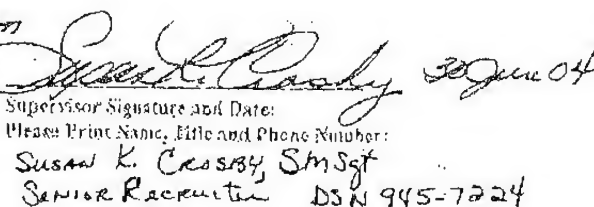 Susan K. Crosby 30 June 04
Supervisor Signature and Date:
Please Print Name, Title and Phone Number:
SUSAN K. CROSBY, SMSgt
SENIOR RECRUITER DSN 945-7224